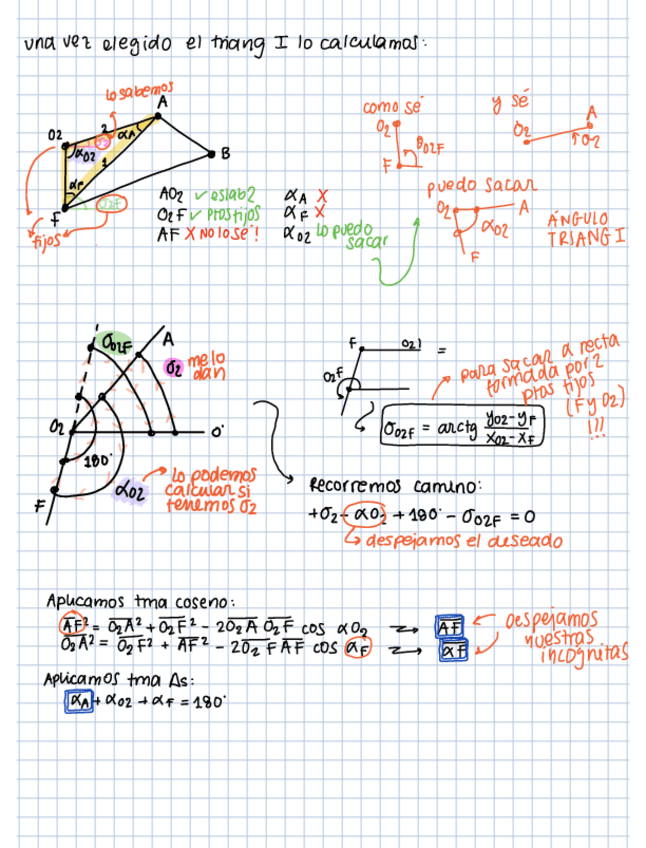 una vez elegido el triang I lo calculamos:
lo sabemos
A
O2
2
αA
αO2
1
B
αF
F
fijos
AO2 ✓ eslab2
O2F ✓ ptos fijos
AF X No lo sé!
αA X
αF X
αO2 lo puedo sacar
como sé
O2
σO2F
F
y sé
A
O2
σO2
puedo sacar
O2
A
αO2
F
ÁNGULO
TRIANG I
σO2F
A
σ2 me lo dan
O2
0°
180°
F
αO2
lo podemos
calcular si
tenemos σ2
F
=
σ2F
para sacar a recta
formada por 2
ptos fijos
(F y O2)
!!!
σO2F = arctg (yO2 - yF)/(xO2 - xF)
Recorremos camino:
+σ2 - αO2 + 180° - σO2F = 0
despejamos el deseado
Aplicamos tma coseno:
AF² = O2A² + O2F² - 2O2A O2F cos αO2 → AF
O2A² = O2F² + AF² - 2O2F AF cos αF → αF
Despejamos
nuestras
incognitas
Aplicamos tma As:
αA + αO2 + αF = 180°